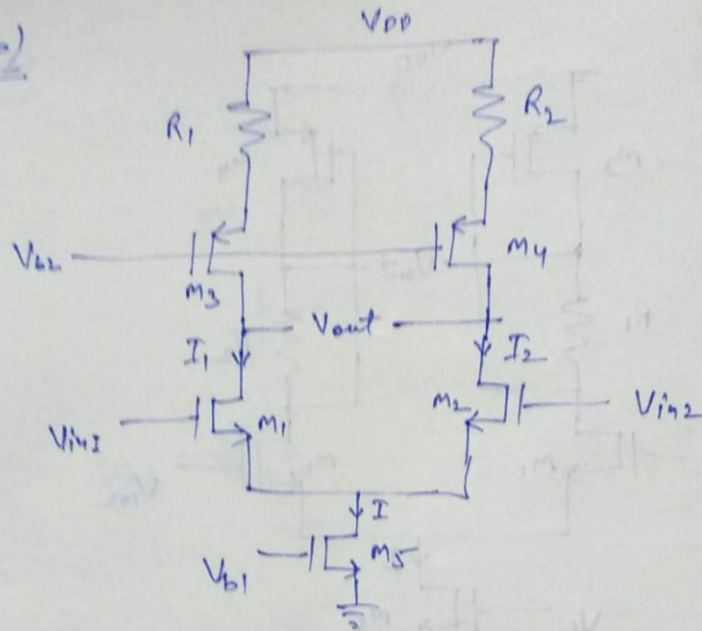 VDD
R1
R2
Vb2
M3
M4
Vout
I1
I2
Vin1
M1
M2
Vin2
I
Vb1
M5